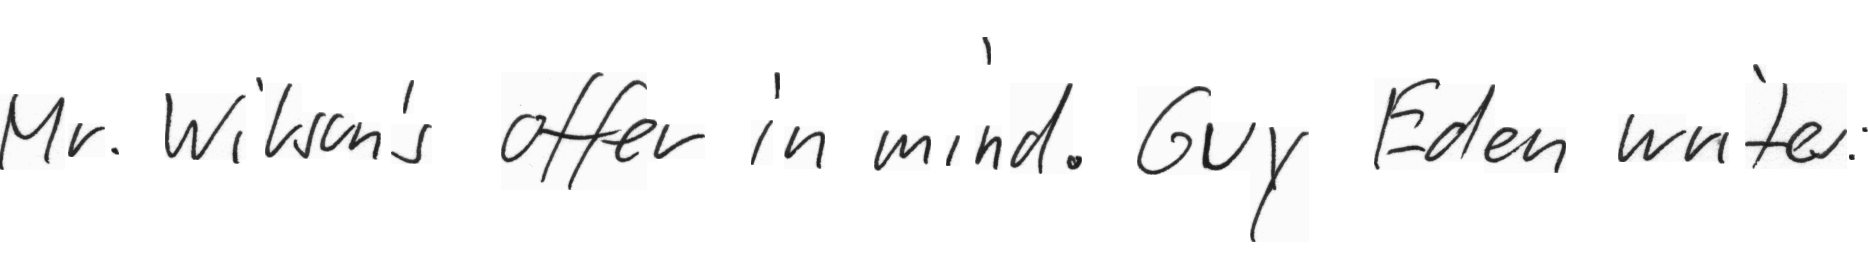 Mr. Wilson's offer in mind. Guy Eden writes: